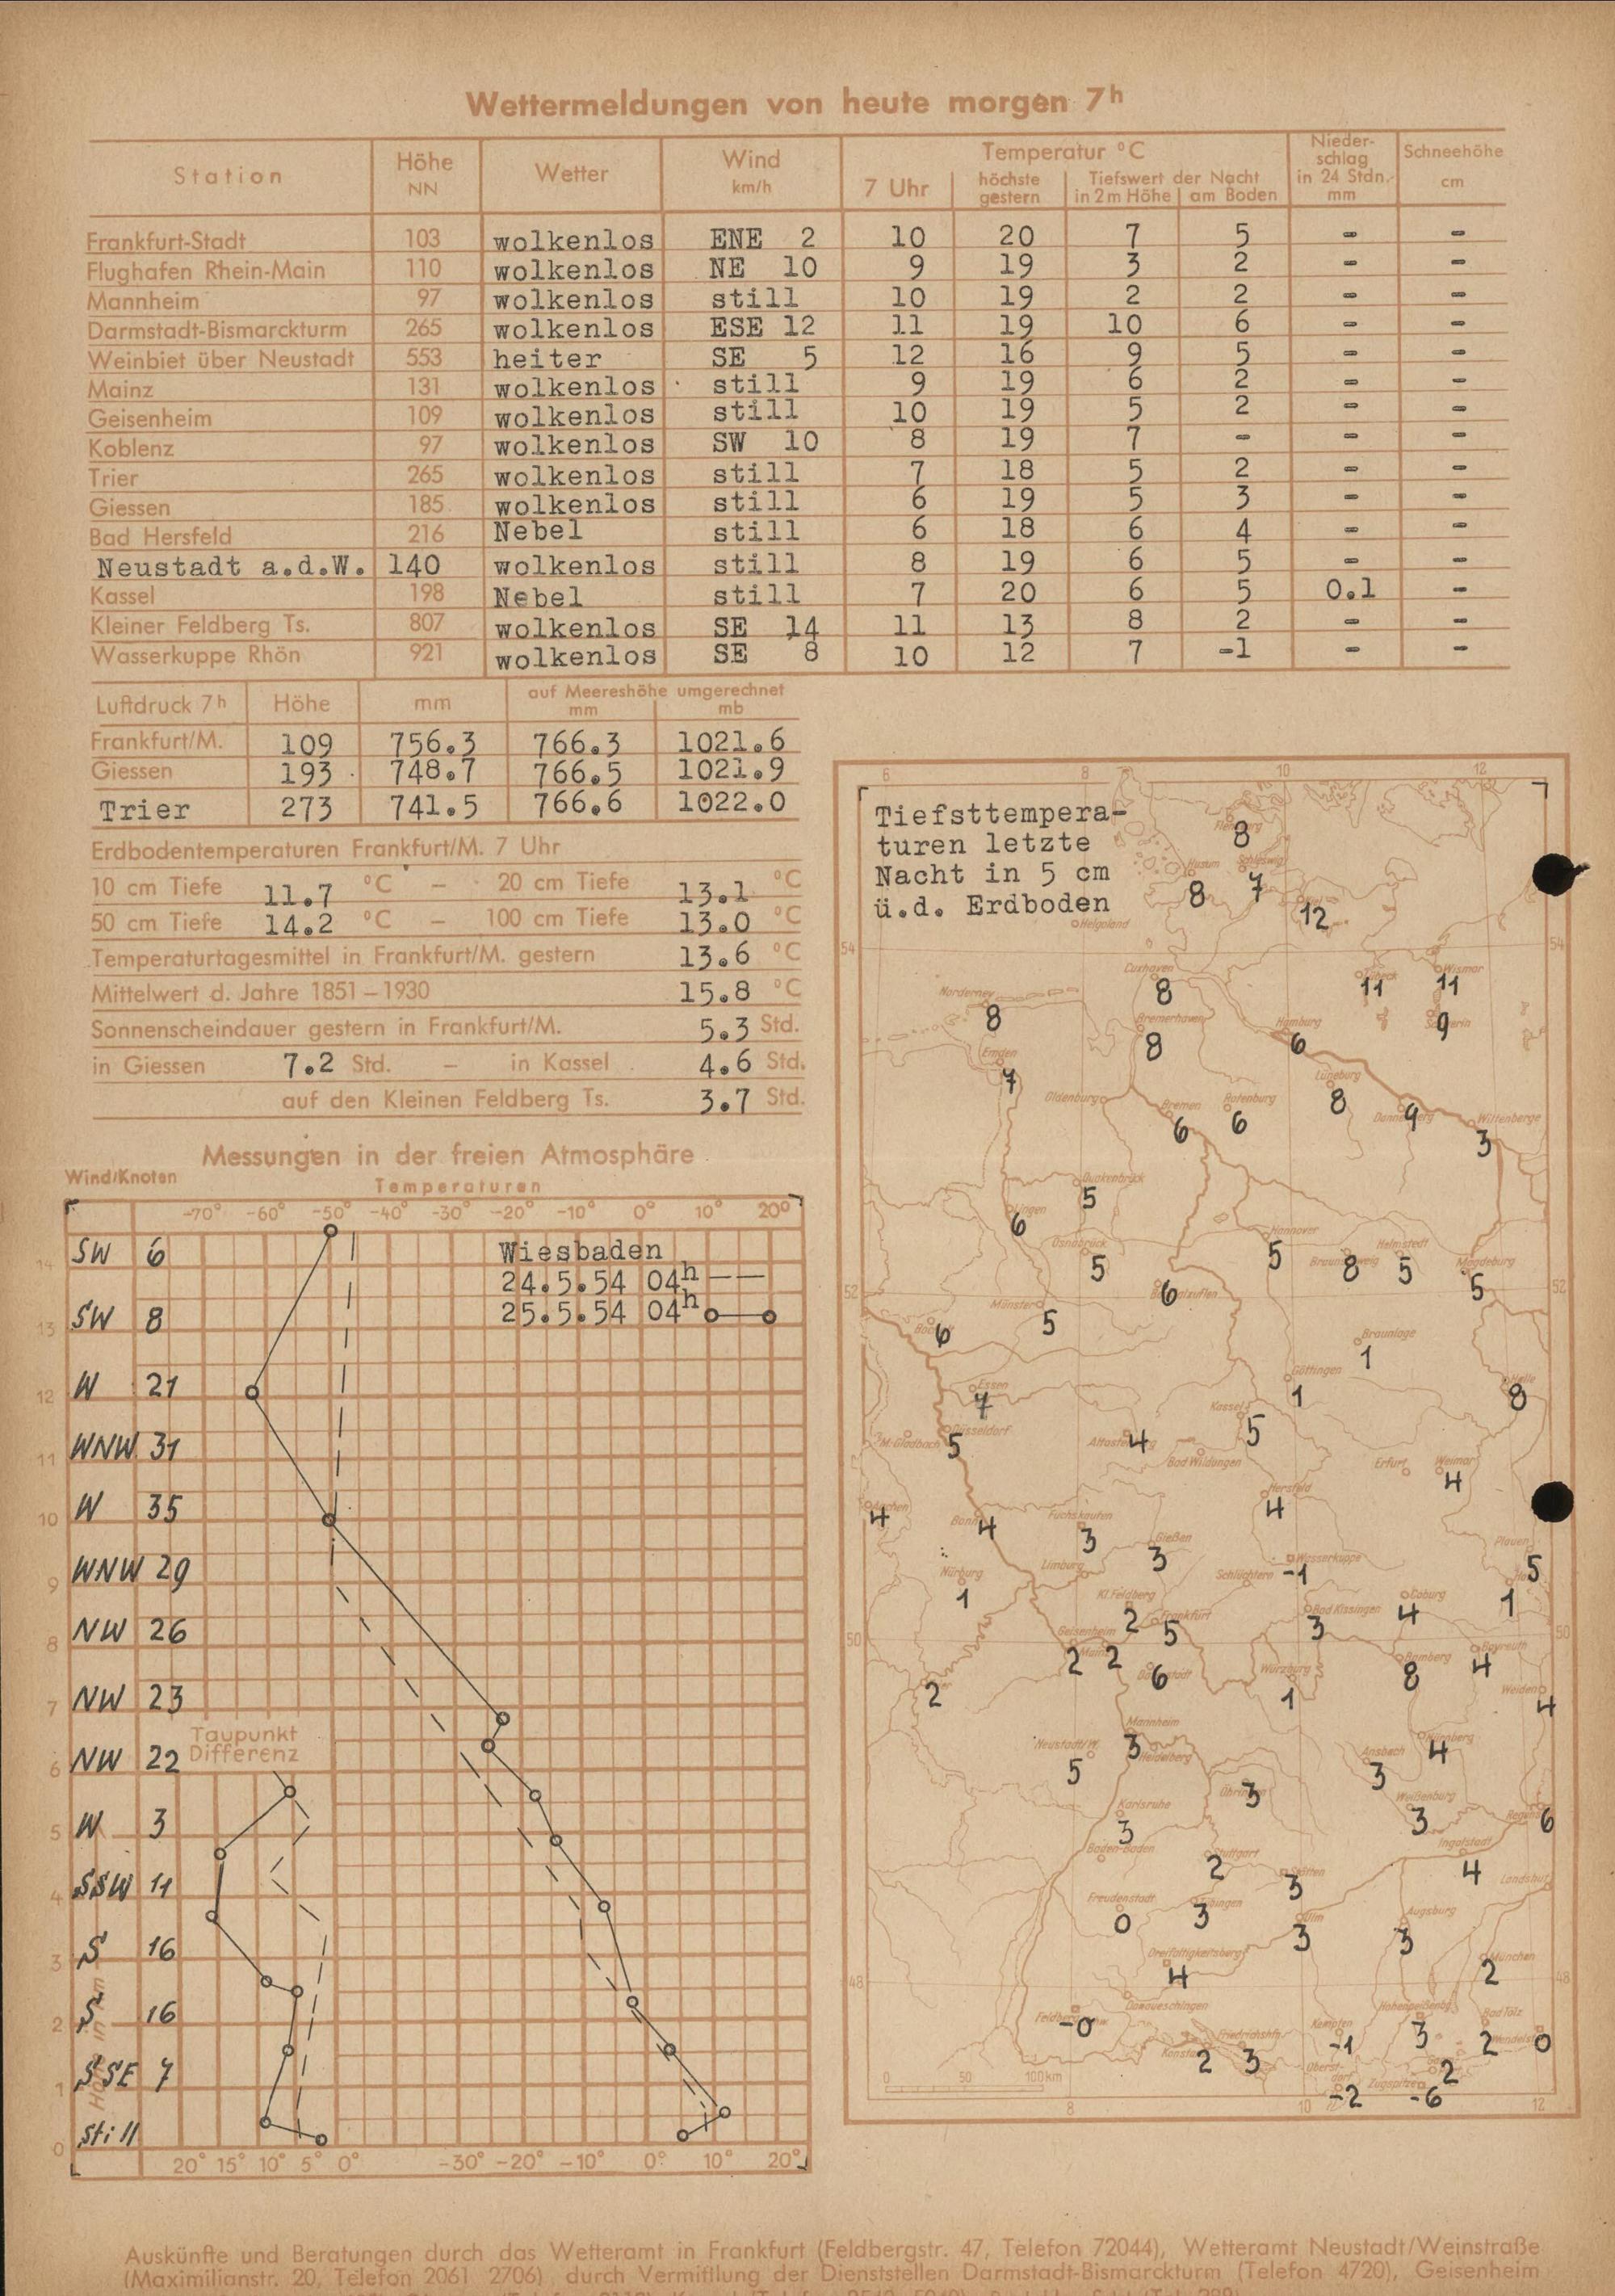 Wettermeldungen von heute morgen 7h
Station Höhe NN Wetter Wind km/h Temperatur °C Nieder-schlag in 24 Stdn. mm Schneehöhe cm
7 Uhr höchste gestern Tiefswert der Nacht in 2 m Höhe am Boden
Frankfurt-Stadt 103 wolkenlos ENE 2 10 20 7 5 - -
Flughafen Rhein-Main 110 wolkenlos NE 10 9 19 3 2 - -
Mannheim 97 wolkenlos still 10 19 2 2 - -
Darmstadt-Bismarckturm 265 wolkenlos ESE 12 11 19 10 6 - -
Weinbiet über Neustadt 553 heiter SE 5 12 16 9 5 - -
Mainz 131 wolkenlos still 9 19 6 2 - -
Geisenheim 109 wolkenlos still 10 19 5 2 - -
Koblenz 97 wolkenlos SW 10 8 19 7 - - -
Trier 265 wolkenlos still 7 18 5 2 - -
Giessen 185 wolkenlos still 6 19 5 3 - -
Bad Hersfeld 216 Nebel still 6 18 6 4 - -
Neustadt a.d.W. 140 wolkenlos still 8 19 6 5 - -
Kassel 198 Nebel still 7 20 6 5 0.1 -
Kleiner Feldberg Ts. 807 wolkenlos SE 14 11 13 8 2 - -
Wasserkuppe Rhön 921 wolkenlos SE 8 10 12 7 -1 - -
Luftdruck 7h Höhe mm auf Meereshöhe umgerechnet mm mb
Frankfurt/M. 109 756.3 766.3 1021.6
Giessen 193 748.7 766.5 1021.9
Trier 273 741.5 766.6 1022.0
Erdbodentemperaturen Frankfurt/M. 7 Uhr
10 cm Tiefe 11.7 °C – 20 cm Tiefe 13.1 °C
50 cm Tiefe 14.2 °C – 100 cm Tiefe 13.0 °C
Temperaturtagesmittel in Frankfurt/M. gestern 13.6 °C
Mittelwert d. Jahre 1851–1930 15.8 °C
Sonnenscheindauer gestern in Frankfurt/M. 5.3 Std.
in Giessen 7.2 Std. – in Kassel 4.6 Std.
auf den Kleinen Feldberg Ts. 3.7 Std.
Messungen in der freien Atmosphäre
Wind/Knoten Temperaturen
-70° -60° -50° -40° -30° -20° -10° 0° 10° 20°
Wiesbaden
24.5.54 04h
25.5.54 04h
14 SW 6
13 SW 8
12 W 21
11 WNW 31
10 W 35
9 WNW 29
8 NW 26
7 NW 23
Taupunkt
Differenz
6 NW 22
5 W 3
4 SSW 11
3 S 16
2 S 16
1 SSE 7
0 still
Höhe in km
20° 15° 10° 5° 0° -30° -20° -10° 0° 10° 20°
6 8 10 12
Tiefsttempera-
turen letzte
Nacht in 5 cm
ü.d. Erdboden
8
Husum 8 Schleswig 7
12
Helgoland
54 54
Cuxhaven 8 11 Wismar 11
Norderney 8
Bremerhaven 8 Hamburg 6 9
Emden 7
Oldenburg Bremen 6 Rotenburg 6 Lüneburg 8 9 Wittenberge 3
Quakenbrück 5
Lingen 6
Osnabrück 5 Hannover 5 8 Helmstedt 5 Magdeburg 5
52 52
Münster 5 6
6
Braunlage 1
Göttingen 1
Essen 7 Halle 8
Kassel 5
M.Gladbach Düsseldorf 5 4 Bad Wildungen
Erfurt Weimar 4
Aachen 4 Bonn 4 Hersfeld 4
3 Gießen 3
Limburg Schlüchtern Wasserkuppe -1 Plauen 5
Nürburg 1 Kl.Feldberg 2 Frankfurt 5 Bad Kissingen 3 Coburg 4 Hof 1
50 50
Geisenheim 2 Mainz 2 6
2 Würzburg 1 Bamberg 8 Bayreuth 4
Weiden 4
Mannheim 3 Heidelberg
Neustadt/W. 5 Ansbach 3 Nürnberg 4
Öhringen 3 Weißenburg 3 6
Karlsruhe 3
Baden-Baden Ingolstadt 4
Stuttgart 2 3 Landshut
Freudenstadt 0 Tübingen 3 Ulm 3 Augsburg 3
Dreifaltigkeitsberg 4 München 2
48 48
Donaueschingen
-0
Konstanz 2 Friedrichshfn. 3 Kempten -1 Hohenpeißenbg. 3 Bad Tölz 2 0
2
-2 Zugspitze -6
0 50 100km
8 10 12
Auskünfte und Beratungen durch das Wetteramt in Frankfurt (Feldbergstr. 47, Telefon 72044), Wetteramt Neustadt/Weinstraße
(Maximilianstr. 20, Telefon 2061 2706), durch Vermittlung der Dienststellen Darmstadt-Bismarckturm (Telefon 4720), Geisenheim